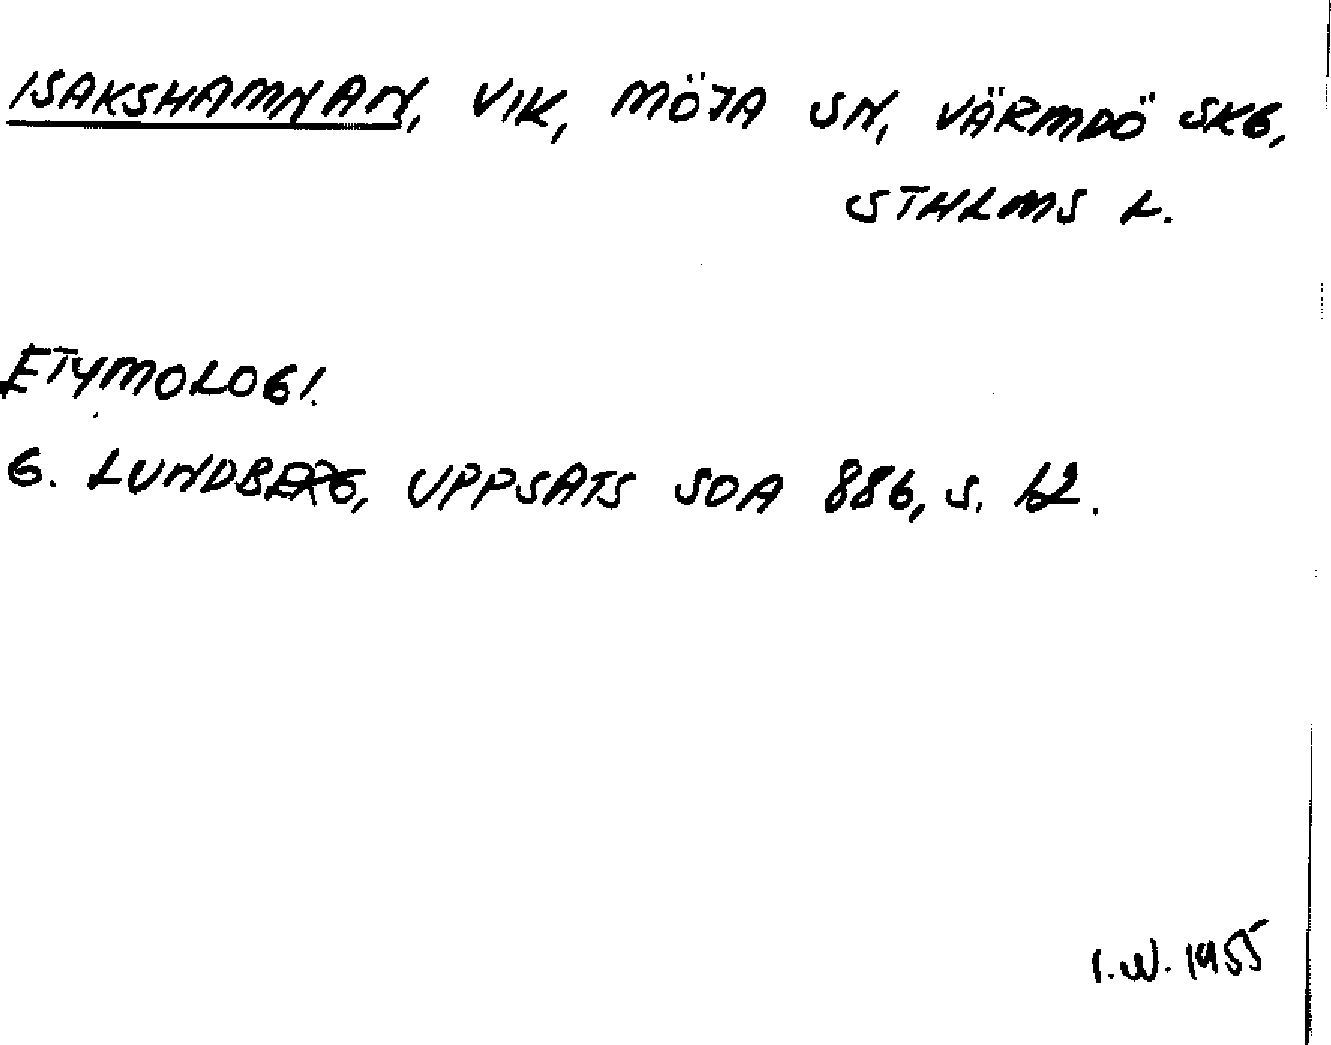 ISAKSHAMNAN, VIK, MÖJA SN, VÄRMDÖ SKG,
STHLMS L.
ETYMOLOGI.
G. LUNDBERG, UPPSATS SOA 886, S. 12.
I.W. 1955